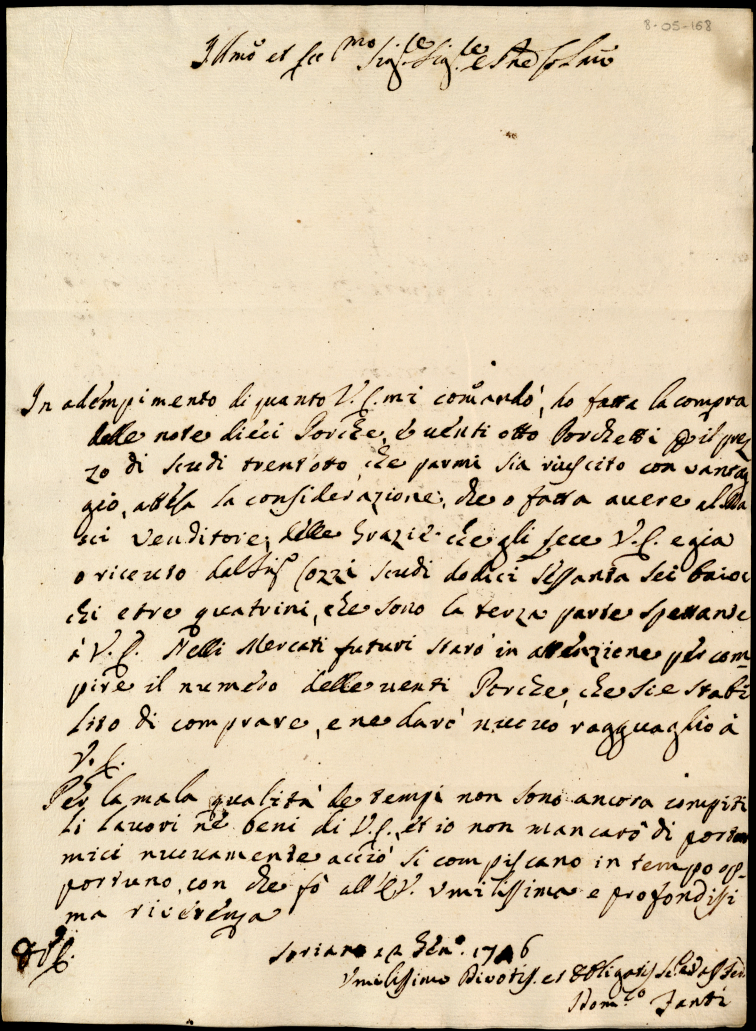 8-05-168
Illmo et Ecc mo Sigre Sig.re e Pne Colmo
In adempimento di quanto V.E. mi comandò, ho fatta la compra
delle note dieci Porche, e uenti otto Porchetti p il prez
zo di scudi trent'otto, che parmi sia riuscito con vantag
gio, attesa la considerazione, che o fatta auere al
sci Venditore, delle Grazie che gli fece V.E. e gia
o riceuto dal Sig.r Cozzi scudi dodici sessanta sei baioc
chi e tre quatrini, che sono la terza parte spettante
à V.E. Nelli Mercati futuri starò in attenzione per com=
pire il numero delle uenti Porche, che si e stabi
lito di comprare, e ne darò nuouo ragguaglio à
V.E.
Per la mala qualità de tempi non sono ancora compiti
li lauori ne beni di V.E., et io non mancarò di portar
mici nuouamente acciò si compiscano in tempo op=
portuno, con che fò all'E.V. vmilissima e profondissi
ma riuerenza
D V.E.
Soriano Gen.o 17 6
Vmilissimo Diuotis. et Obligatis
Dom.co Fanti